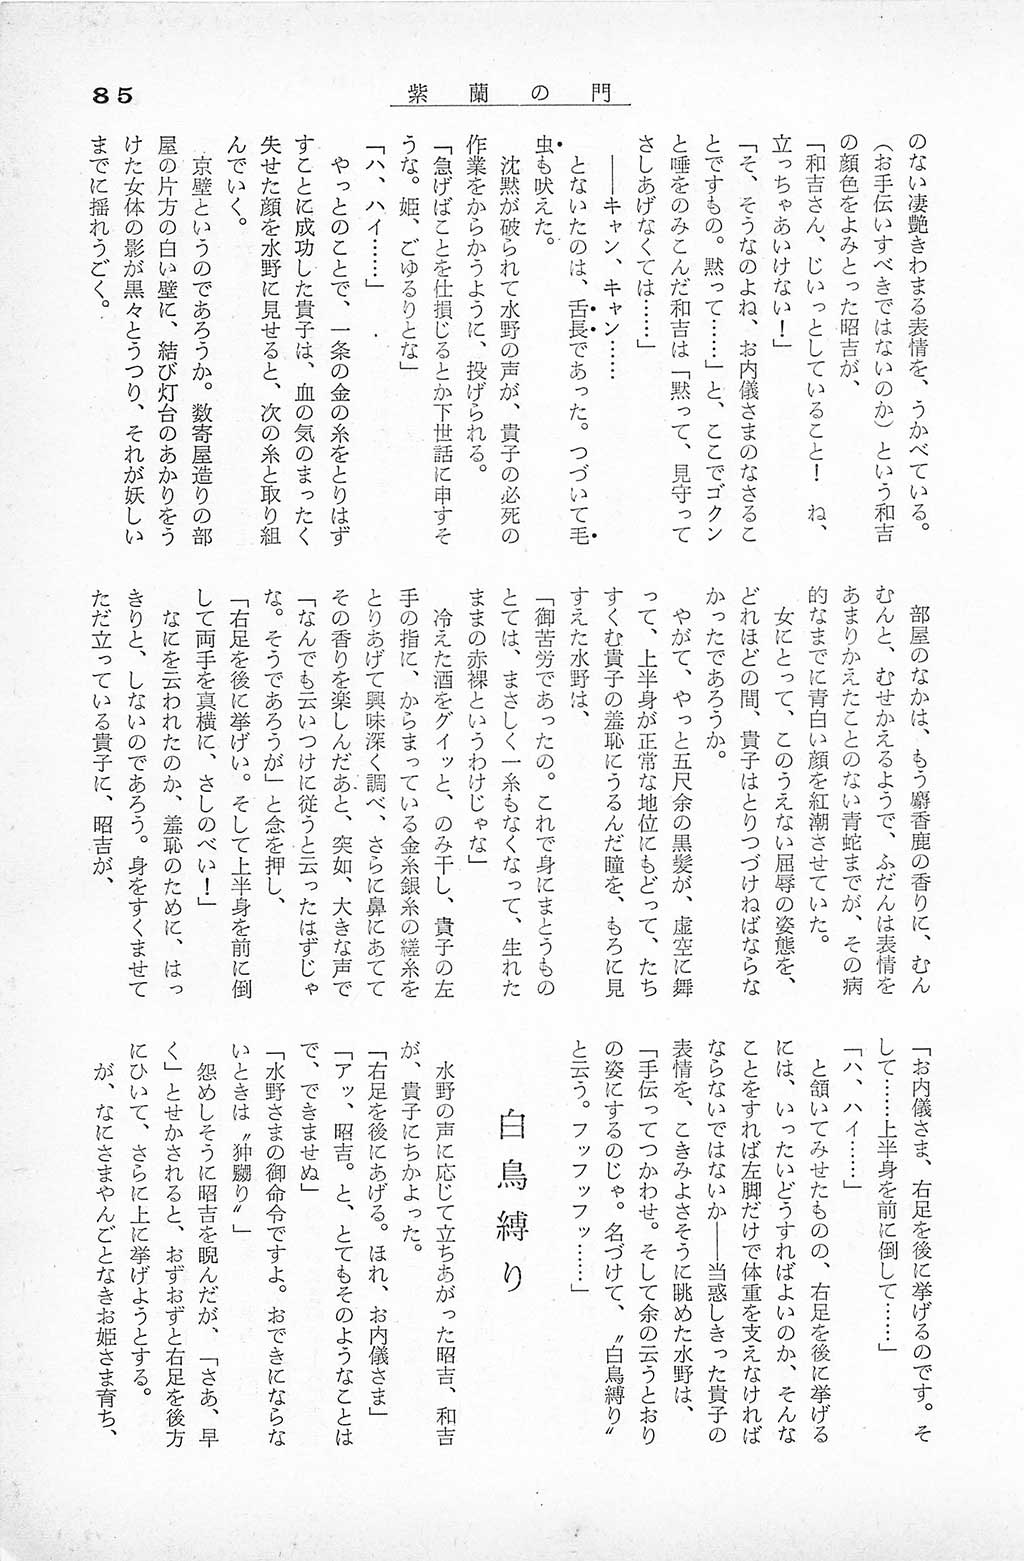 85
紫蘭の門
のない凄艶きわまる表情を、うかべている。
（お手伝いすべきではないのか）という和吉
の顔色をよみとった昭吉が、
「和吉さん、じいっとしていること！　ね、
立っちゃあいけない！」
「そ、そうなのよね、お内儀さまのなさるこ
とですもの。黙って……」と、ここでゴクン
と唾をのみこんだ和吉は「黙って、見守って
さしあげなくては……」
――キャン、キャン……
とないたのは、舌長であった。つづいて毛
虫も吠えた。
沈黙が破られて水野の声が、貴子の必死の
作業をからかうように、投げられる。
「急げばことを仕損じるとか下世話に申すそ
うな。姫、ごゆるりとな」
「ハ、ハイ……」
やっとのことで、一条の金の糸をとりはず
すことに成功した貴子は、血の気のまったく
失せた顔を水野に見せると、次の糸と取り組
んでいく。
京壁というのであろうか。数寄屋造りの部
屋の片方の白い壁に、結び灯台のあかりをう
けた女体の影が黒々とうつり、それが妖しい
までに揺れうごく。
部屋のなかは、もう麝香鹿の香りに、むん
むんと、むせかえるようで、ふだんは表情を
あまりかえたことのない青蛇までが、その病
的なまでに青白い顔を紅潮させていた。
女にとって、このうえない屈辱の姿態を、
どれほどの間、貴子はとりつづけねばならな
かったであろうか。
やがて、やっと五尺余の黒髪が、虚空に舞
って、上半身が正常な地位にもどって、たち
すくむ貴子の羞恥にうるんだ瞳を、もろに見
すえた水野は、
「御苦労であったの。これで身にまとうもの
とては、まさしく一糸もなくなって、生れた
ままの赤裸というわけじゃな」
冷えた酒をグイッと、のみ干し、貴子の左
手の指に、からまっている金糸銀糸の縒糸を
とりあげて興味深く調べ、さらに鼻にあてて
その香りを楽しんだあと、突如、大きな声で
「なんでも云いつけに従うと云ったはずじゃ
な。そうであろうが」と念を押し、
「右足を後に挙げい。そして上半身を前に倒
して両手を真横に、さしのべい！」
なにを云われたのか、羞恥のために、はっ
きりと、しないのであろう。身をすくませて
ただ立っている貴子に、昭吉が、
「お内儀さま、右足を後に挙げるのです。そ
して……上半身を前に倒して……」
「ハ、ハイ……」
と頷いてみせたものの、右足を後に挙げる
には、いったいどうすればよいのか、そんな
ことをすれば左脚だけで体重を支えなければ
ならないではないか――当惑しきった貴子の
表情を、こきみよさそうに眺めた水野は、
「手伝ってつかわせ。そして余の云うとおり
の姿にするのじゃ。名づけて、〝白鳥縛り〟
と云う。フッフッフッ……」
白鳥縛り
水野の声に応じて立ちあがった昭吉、和吉
が、貴子にちかよった。
「右足を後にあげる。ほれ、お内儀さま」
「アッ、昭吉。と、とてもそのようなことは
で、できませぬ」
「水野さまの御命令ですよ。おできにならな
いときは〝狆嬲り〟」
怨めしそうに昭吉を睨んだが、「さあ、早
く」とせかされると、おずおずと右足を後方
にひいて、さらに上に挙げようとする。
が、なにさまやんごとなきお姫さま育ち、